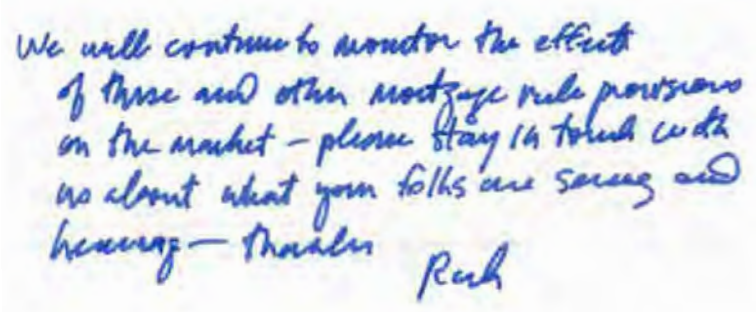 We will continue to monitor the effects
of these and other mortgage rule provisions
on the market – please stay in touch with
us about what your folks are seeing and
hearing – thanks
Rich